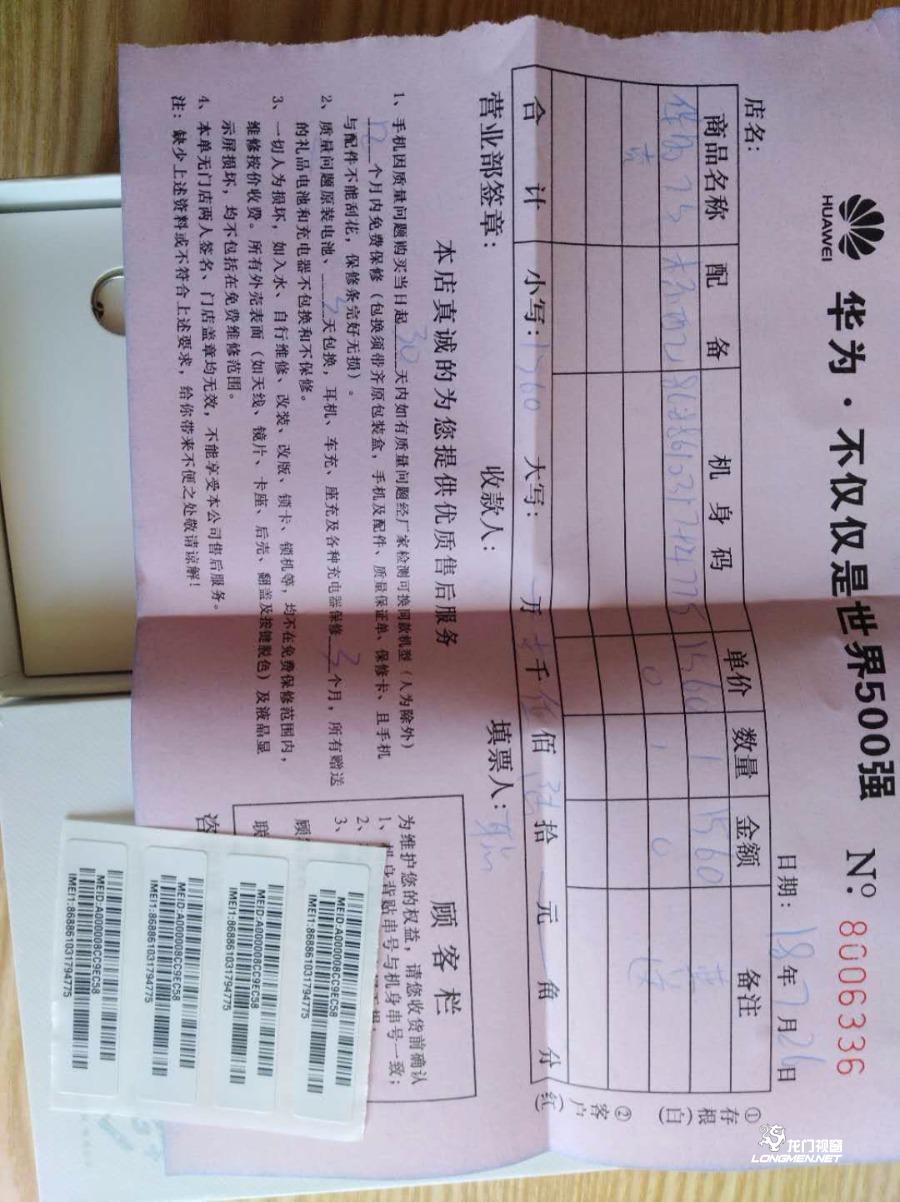 HUAWEI
华为·不仅仅是世界500强
Nº: 8006336
店名:
日期: 18年7月26日
商品名称 配备 机身码 单价 数量 金额 备注
1560 1 1560
0 1 0
合计 小写: 1560 大写: 万 千 佰 拾 元 角 分
营业部签章: 收款人: 填票人:
①存根(白) ②客户(红)
本店真诚的为您提供优质售后服务
1、手机因质量问题购买当日起30天内如有质量问题经厂家检测可换同款机型(人为除外)
12个月内免费保修(包换须带齐原包装盒,手机及配件、质量保证单、保修卡、且手机
与配件不能刮花,保修条完好无损)。
2、质量问题原装电池、 天包换,耳机、车充、座充及各种充电器保修3个月,所有赠送
的礼品电池和充电器不包换和不保修。
3、一切人为损坏,如入水、自行维修、改装、改版、锁卡、锁机等,均不在免费保修范围内,
维修按价收费。所有外壳表面(如天线、镜片、卡座、后壳、翻盖及按键脱色)及液晶显
示屏损坏,均不包括在免费维修范围。
4、本单无门店两人签名、门店盖章均无效,不能享受本公司售后服务。
注:缺少上述资料或不符合上述要求,给你带来不便之处敬请谅解!
顾客栏
为维护您的权益,请您收货前确认
1、机身背贴串号与机身串号一致;
2、
3、
顾
联
咨
MEID:A000008CC9EC58
IMEI1:868861031794775
MEID:A000008CC9EC58
IMEI1:868861031794775
MEID:A000008CC9EC58
IMEI1:868861031794775
MEID:A000008CC9EC58
IMEI1:868861031794775
龙门视窗
LONGMEN.NET